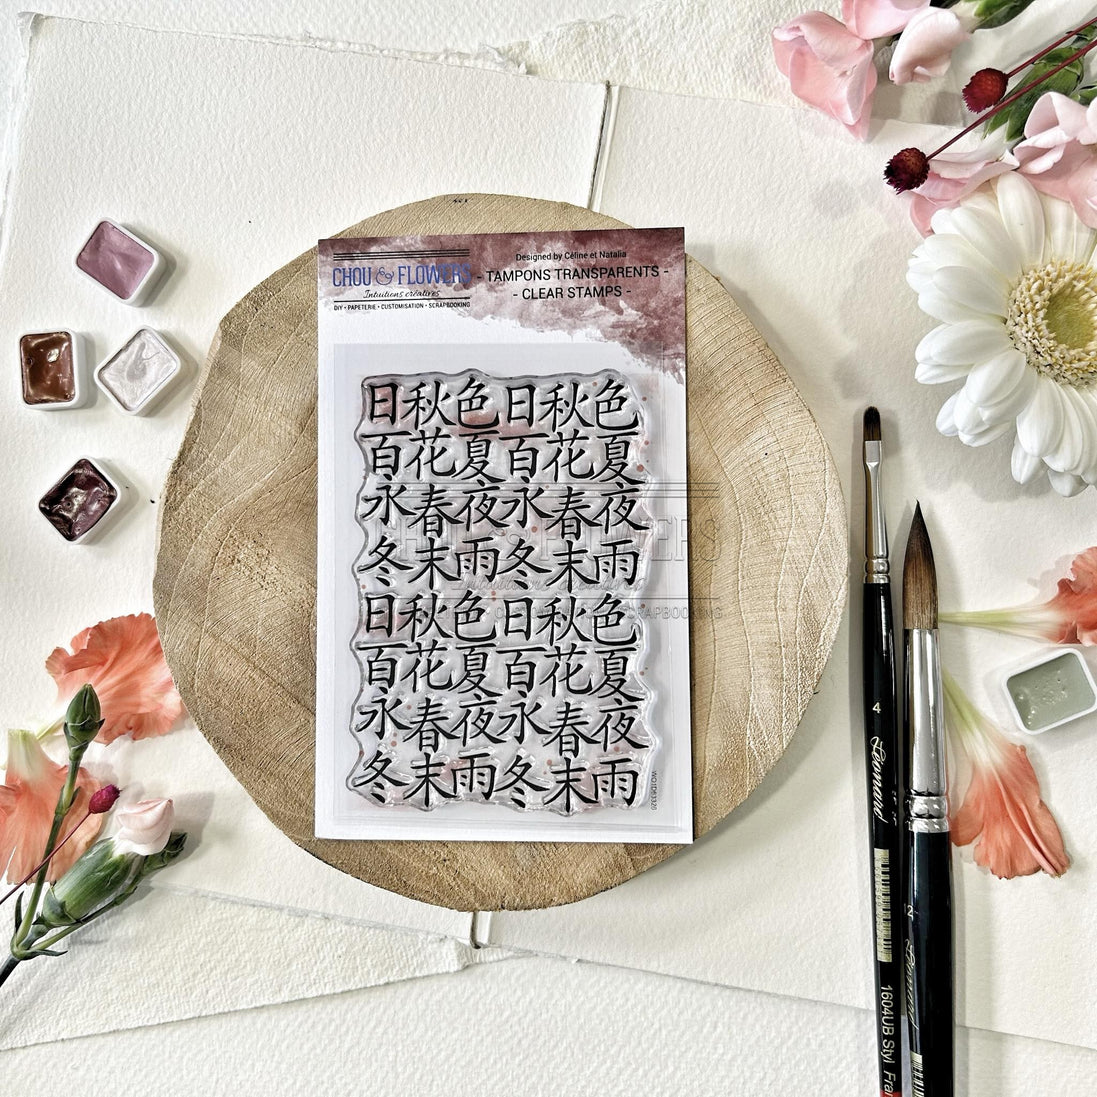 Designed by Céline et Natalia
CHOU & FLOWERS
Intuitions créatives
DIY • PAPETERIE • CUSTOMISATION • SCRAPBOOKING
- TAMPONS TRANSPARENTS -
- CLEAR STAMPS -
日秋色日秋色
百花夏百花夏
永春夜永春夜
冬末雨冬末雨
日秋色日秋色
百花夏百花夏
永春夜永春夜
冬末雨冬末雨
CHOU & FLOWERS
SCRAPBOOKING
4
Léonard
1604UB Styl
Léonard